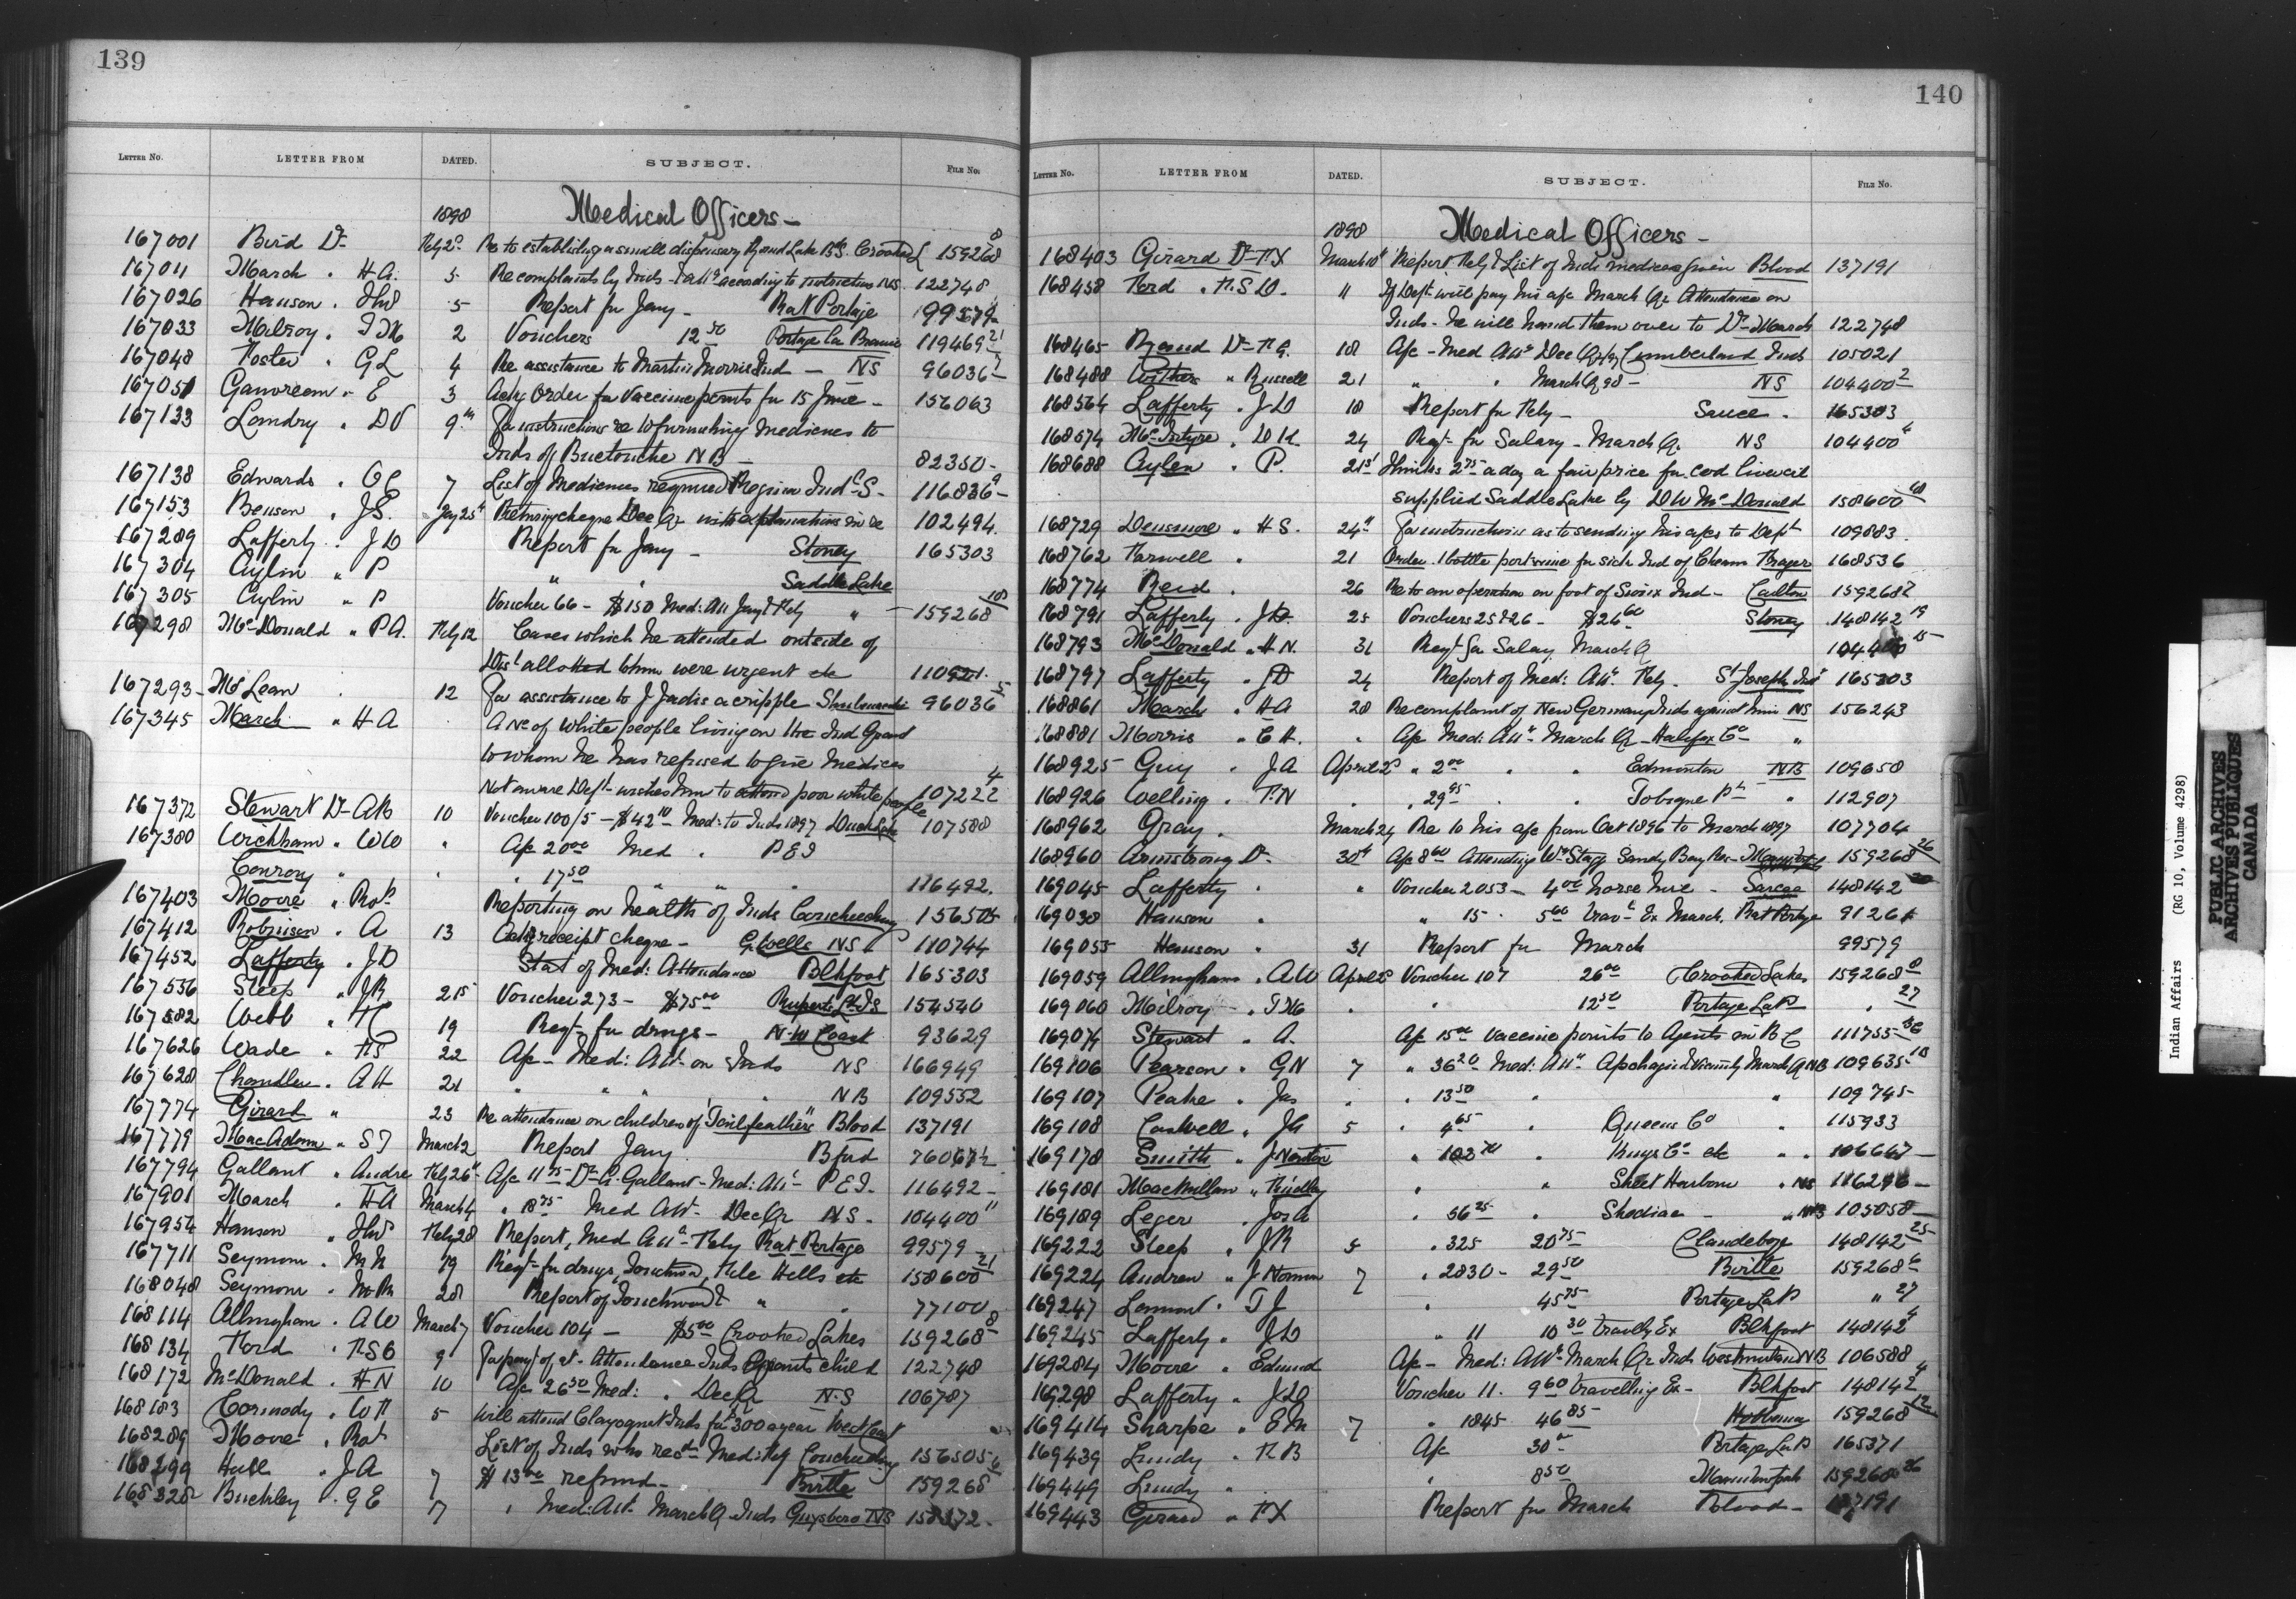 139
LETTER NO. LETTER FROM DATED. SUBJECT. FILE NO.
1898 Medical Officers -
167001 Bird Dr Feby 2d Re to establishing a small dispensary Round Lake B'd S. Crooked L 159268 8
167011 March " H A. 5 Re complaints by Inds - Tattd according to instructions NS. 122748
167026 Hanson . Thos 5 Report for Jany - Rat Portage 99579
167033 Milroy . T M 2 Vouchers 12 50 Portage La Prairie 119469 21
167048 Foster . G L 4 Re assistance to Martin Morris Ind - NS 96036
167051 Ganvreem " E 3 Ackg Order for Vaccine points for 15 June - 156063
167133 Landry . D V 9th For instructions re to furnishing medicines to
Inds of Buctouche NB - 82350 -
167138 Edwards . O C 7 List of Medicines required Regina Ind S - 116836 -
167153 Benson . J S. Jany 25th Returning cheque Dec Qr with explanations in re 102494.
167289 Lafferty . J D Report for Jany - Stoney 165303
167304 Aylin " P " " Saddle Lake
167305 Aylin " P Voucher 66 - $150 Med: Att Jany & Feby " - 159268 10
167298 McDonald " P A. Feby 12 Cases which he attended outside of
Dist allotted to him were urgent etc 110921.
167293 - McLean . 12 For assistance to J Jadis a cripple Shubenacadie 96036 5
167345 March " H A . A No of White people living on the Ind Grand
to whom he has refused to give Medices
Not aware Dept wishes him to attend poor white people 107222 4
167372 Stewart Dr A B 10 Voucher 100/5 - $42 10 Med: to Inds 1897 Duck Lake 107588
167380 Wickham " W W " A/c 20 00 Med . P E I
Conroy " " . 17 50 " " " 116492.
167403 Moore " Robt Reporting on health of Inds Couchiching 156505
167412 Robinson . A 13 Ackg receipt cheque - G Wells NS 110744
167452 Lafferty . J D Stat of Med: Attendance Blkfoot 165303
167556 Steep " J R 21 5 Voucher 273 - $75 00 Ruperts Ld I S 154540
167582 Webb " H C 19 Reqt for drugs - N.W Coast 93629
167626 Wade " F S 22 A/c - Med: Att on Inds NS 166949
167628 Chandler . A H 21 " " " " NB 109552
167774 Girard " 23 Re attendance on children of "Tailfeathers" Blood 137191
167779 MacAdam " S T March 2 Report Jany Bfrd
167794 Gallant " Andre Feby 26th A/c 11 75 Dr A. Gallant - Med: Att - P E I. 116492 -
167901 March " H A March 4 " 18 75 Med Att - Dec Qr NS - 104400 "
167954 Hanson " Thos Feby 28 Report, Med Att - Feby Rat Portage 99579 -
167711 Seymour . M M 19 Reqt for drugs, Touchwood, File Hills etc 158600 21
168048 Seymour . M M 28 Report of Touchwood & " " 77100
168114 Allingham . A W March 7 Voucher 104 - $5 00 Crooked Lakes 159268 8
168134 Ford . F S C 9 For payt of a/c - Attendance Inds Grants child 122748
168172 McDonald . H N 10 A/c 26 50 Med: . Dec Qr N.S 106787
168183 Cormody . W F 5 Will attend Clayoquot Inds for $300 a year West Coast
168289 Moore . Robt List of Inds who recd Med: Feby Couchiching 156505
168299 Hall . J A 7 $13 00 refund - Birtle 159268 6
168328 Buckley . G E 7 " Med: Att - March Q - Inds Guysboro NS 158372 -
140
LETTER NO. LETTER FROM DATED. SUBJECT. FILE NO.
1898 Medical Officers -
168403 Girard Dr F X March 10th Report Feby & List of Inds medices given Blood 137191
168458 Ford . F. S D. 11 If Dept will pay his a/c March Qr Attendance on
Inds - he will hand them over to Dr March 122748
168465 Rand Dr F A. 18 A/c - Med Att Dec Qr 97 Cumberland Inds 105021
168488 Withers " Russell 21 " " March Q 98 - NS 104400 2
168564 Lafferty . J D 18 Report for Feby - Sarcee . 165303
168574 McIntyre . D K. 24 Reqt for Salary - March Q. NS 104400 4
168688 Aylen . P. 21st Thinks 2 75 a day a fair price for cod liver oil
supplied Saddle Lake by D W McDonald 158600 60
168729 Densmore " H S. 24th For instructions as to sending his a/cs to Dept 109883.
168762 Farwell . 21 Order 1 bottle port wine for sick Ind of Cheam Fraser 168536
168774 Reid . 26 Re to an operation on foot of Sioux Ind - Carlton 159268 2
168791 Lafferty . J D. 25 Vouchers 25 & 26 - $26 60 Stoney 148142 19
168793 McDonald " H N. 31 Reqt for Salary March Q 104400 15
168797 Lafferty . J D 24 Report of Med: Att. Feby. St Joseph Ind 165303
168861 March " H A 28 Re complaint of New Germany Inds against him NS 156243
168881 Morris " C H. " A/c Med: Att - March Q - Halifax Co "
168925 Guy . J A April 2d " 2 00 " " Edmonton NB 109658
168926 Welling . F. N . " 29 95 . . Tobique Pt " 112907
168962 Gray . March 24 Re to his a/c from Oct 1896 to March 1897 107704
168960 Armstrong Dr. 30th A/c 8 60 Attending Wm Stagg Sandy Bay Res - Manitopah 159268 26
169045 Lafferty . " Voucher 2053 - 4 00 horse hire - Sarcee 148142 20
169038 Hanson " " 15 . 5 00 Trav Ex March. Rat Portage 91261
169055 Hanson " 31 Report for March 99579
169059 Allingham . A W April 2d Voucher 107 26 00 Crooked Lakes 159268 8
169060 Milroy - . T M . " 12 50 Portage La P " 27
169074 Stewart . A. A/c 15 00 Vaccine points to Agents in B C 111755
169106 Pearson . G N 7 " 36 20 Med: Att Apohaqui & Vicinity March Q NB 109635 18
169107 Peake . Jas " . 13 50 " " 109745
169108 Caswell . J G 5 . 4 65 " Queens Co " 115933
169178 Smith " J Newton " 102 70 . Kings Co etc " . 106647 -
169181 MacMillan " Findlay " " Sheet Harbour " NS 116296 -
169189 Leger . Jos A . 36 25 . Shediac - " NB 105058 -
169222 Steep " J R 5 . 325 20 75 Clandeboye 148142 25
169224 Andrew " J Norman 7 . 2830 - 29 50 Birtle 159268 6
169247 Lamont . T J . 45 75 Portage La P " 27
169245 Lafferty . J D " 11 10 30 Travllg Ex Blkfoot 148142 4
169284 Moore " Edmund A/c - Med: Att - March Qr Inds Westmorland NB 106588
169298 Lafferty . J D Voucher 11. 9 60 Travelling Ex - Blkfoot 148142 4
169414 Sharpe " E M 7 " 1845 46 85 Hobbema 159268 12
169439 Lundy . F B A/c 30 00 Portage La P 165371
169449 Lundy . . 8 50 Manitowpah 159268 26
169443 Girard " F X Report for March Blood - 137191
Indian Affairs (RG 10, Volume 4298)
PUBLIC ARCHIVES
ARCHIVES PUBLIQUES
CANADA